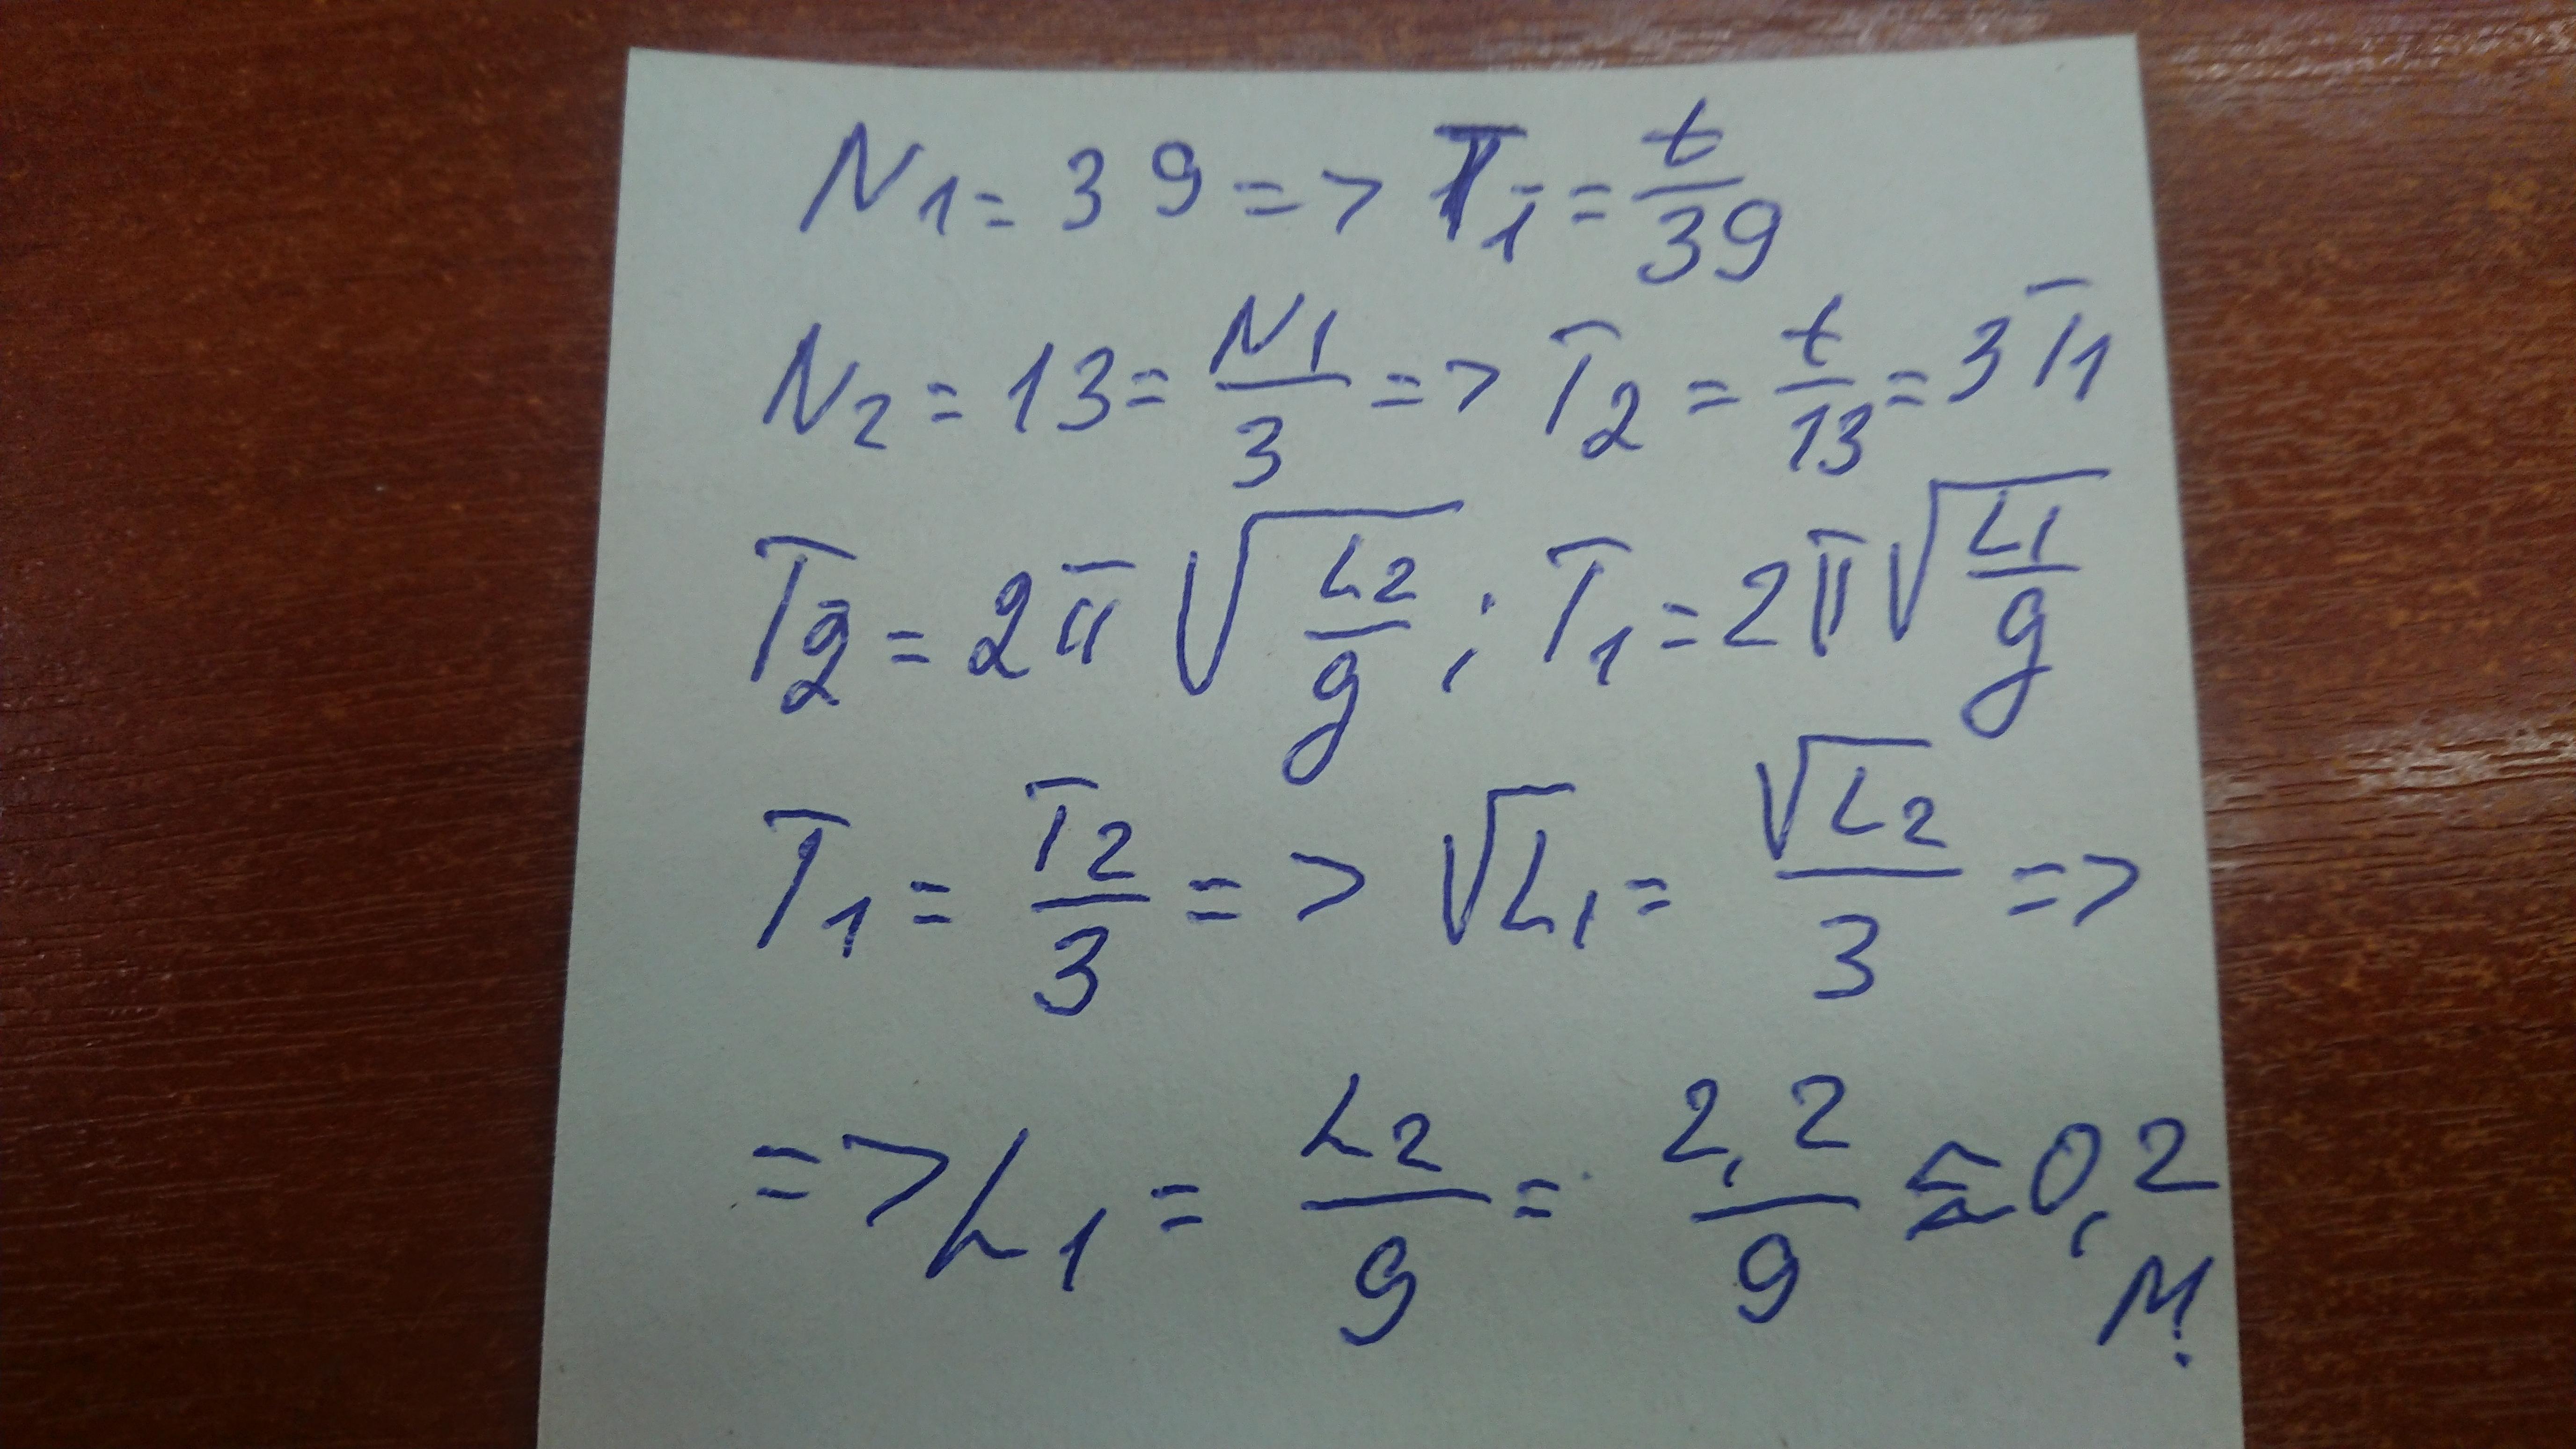 N₁ = 39 => T₁ = t/39
N₂ = 13 = N₁/3 => T₂ = t/13 = 3T₁
T₂ = 2π√(L₂/g) ; T₁ = 2π√(L₁/g)
T₁ = T₂/3 => √L₁ = √L₂/3 =>
=> L₁ = L₂/9 = 2,2/9 ≈ 0,2
м.